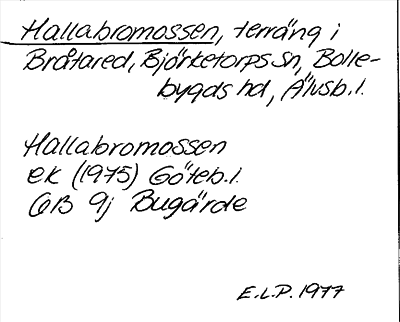 Hallabromossen, terräng i
Bråtared, Björketorps sn, Bolle-
bygds hd, Älvsb.l.
Hallabromossen
ek (1975) Göteb.l.
6B 9j Bugärde
E.L.P. 1977